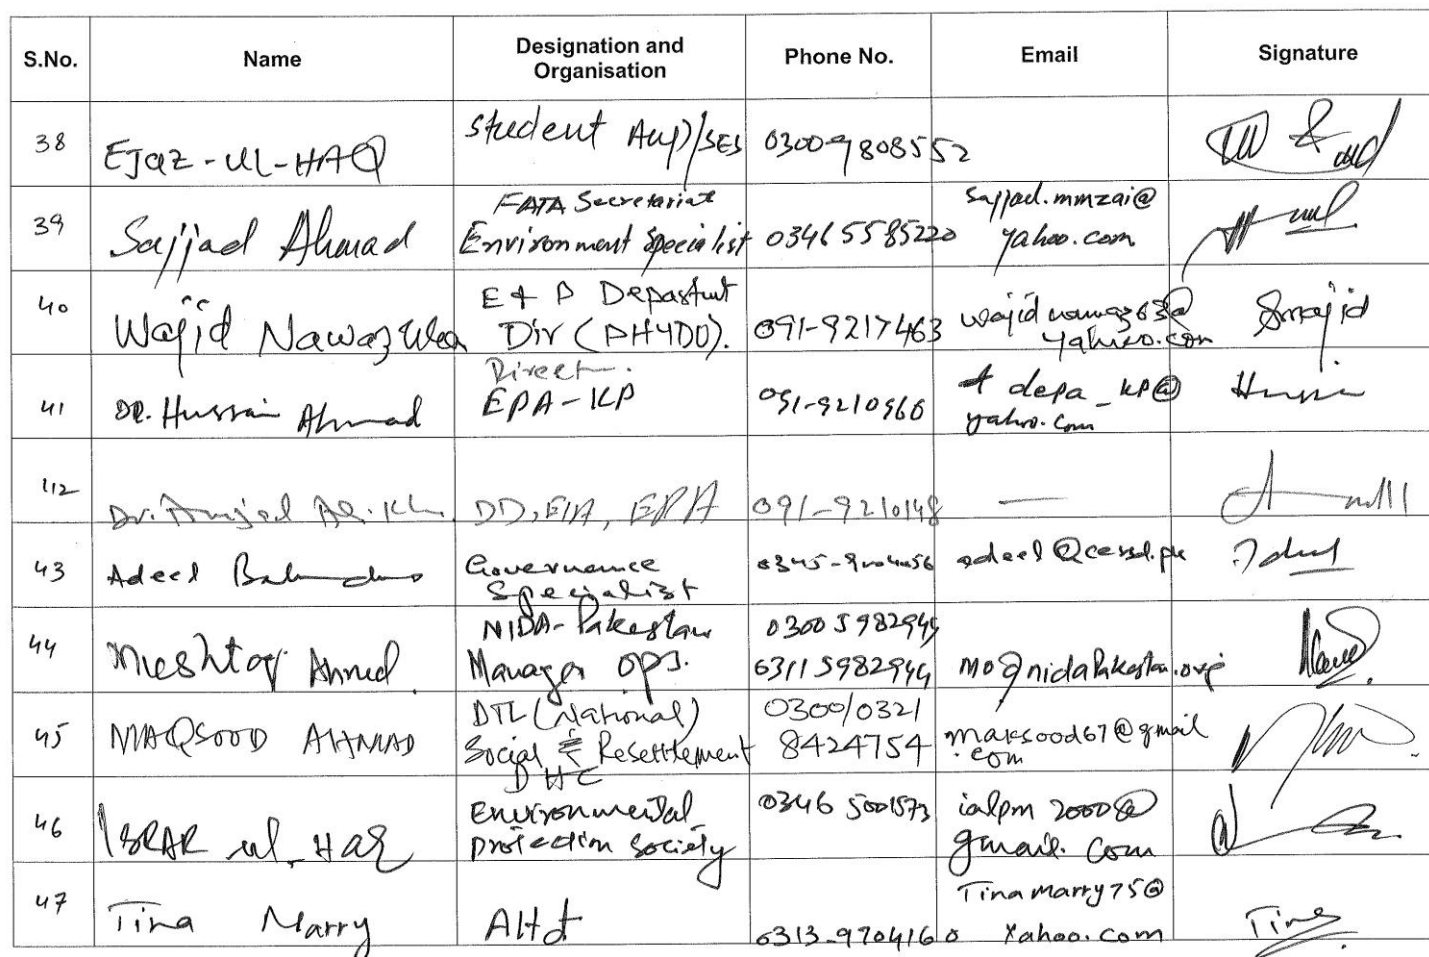 S.No. Name Designation and Organisation Phone No. Email Signature
38 EJaz-Ul-HAQ Student Aup/SES 0300-9808552
39 Sajjad Ahmad FATA Secretariat Environment Specialist 03465585220 Sajjad.mmzai@yahoo.com
40 Wajid Nawaz E & P Dir (PHYDO). 091-9217463 yahoo.com
41 DR. Hussain Ahmad Direct EPA-KP 091-9210960 depa_KP@yahoo.com
42 Dr. Amjad Ali Kh. DD, EIA, EPA 091-9210148 —
43 Adeel Governance Specialist adeel@cessd.pk
44 Meshtaq Ahmed. NIDA-Pakestan Manager ops.
45 MAQSOOD AHMAD DTL (National) Social & Resettlement DHC 0300/0321 8424754 maksood67@gmail.com
46 ISRAR ul-HAQ Environmental protection Society 0346 5001573 ialpm2000@gmail.com
47 Tina Marry AHd 0313-9704160 Tinamarry75@Yahoo.com Tina